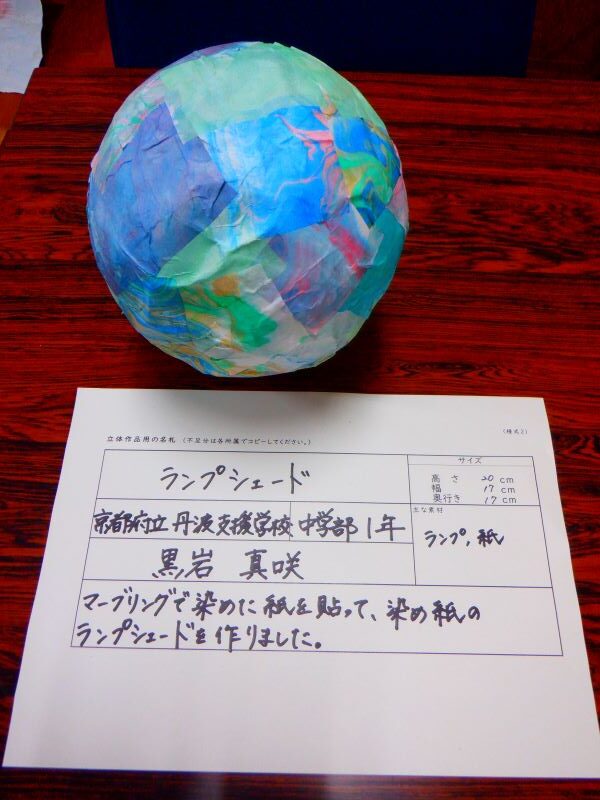 (様式2)
立体作品用の名札 (不足分は各所属でコピーしてください。)
ランプシェード
サイズ
高さ 20 cm
幅 17 cm
奥行き 17 cm
京都府立丹波支援学校 中学部1年
主な素材
ランプ, 紙
黒岩 真咲
マーブリングで染めた紙を貼って、染め紙の
ランプシェードを作りました。